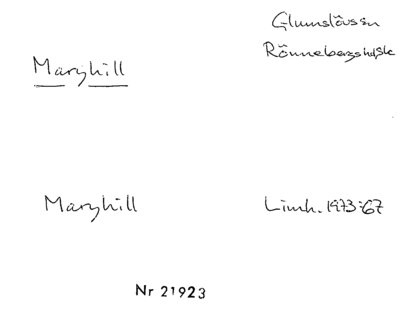 Glumslövs sn
Rönnebergs hd, Sk
Maryhill
Maryhill
Limh. 1973:67
Nr 21923